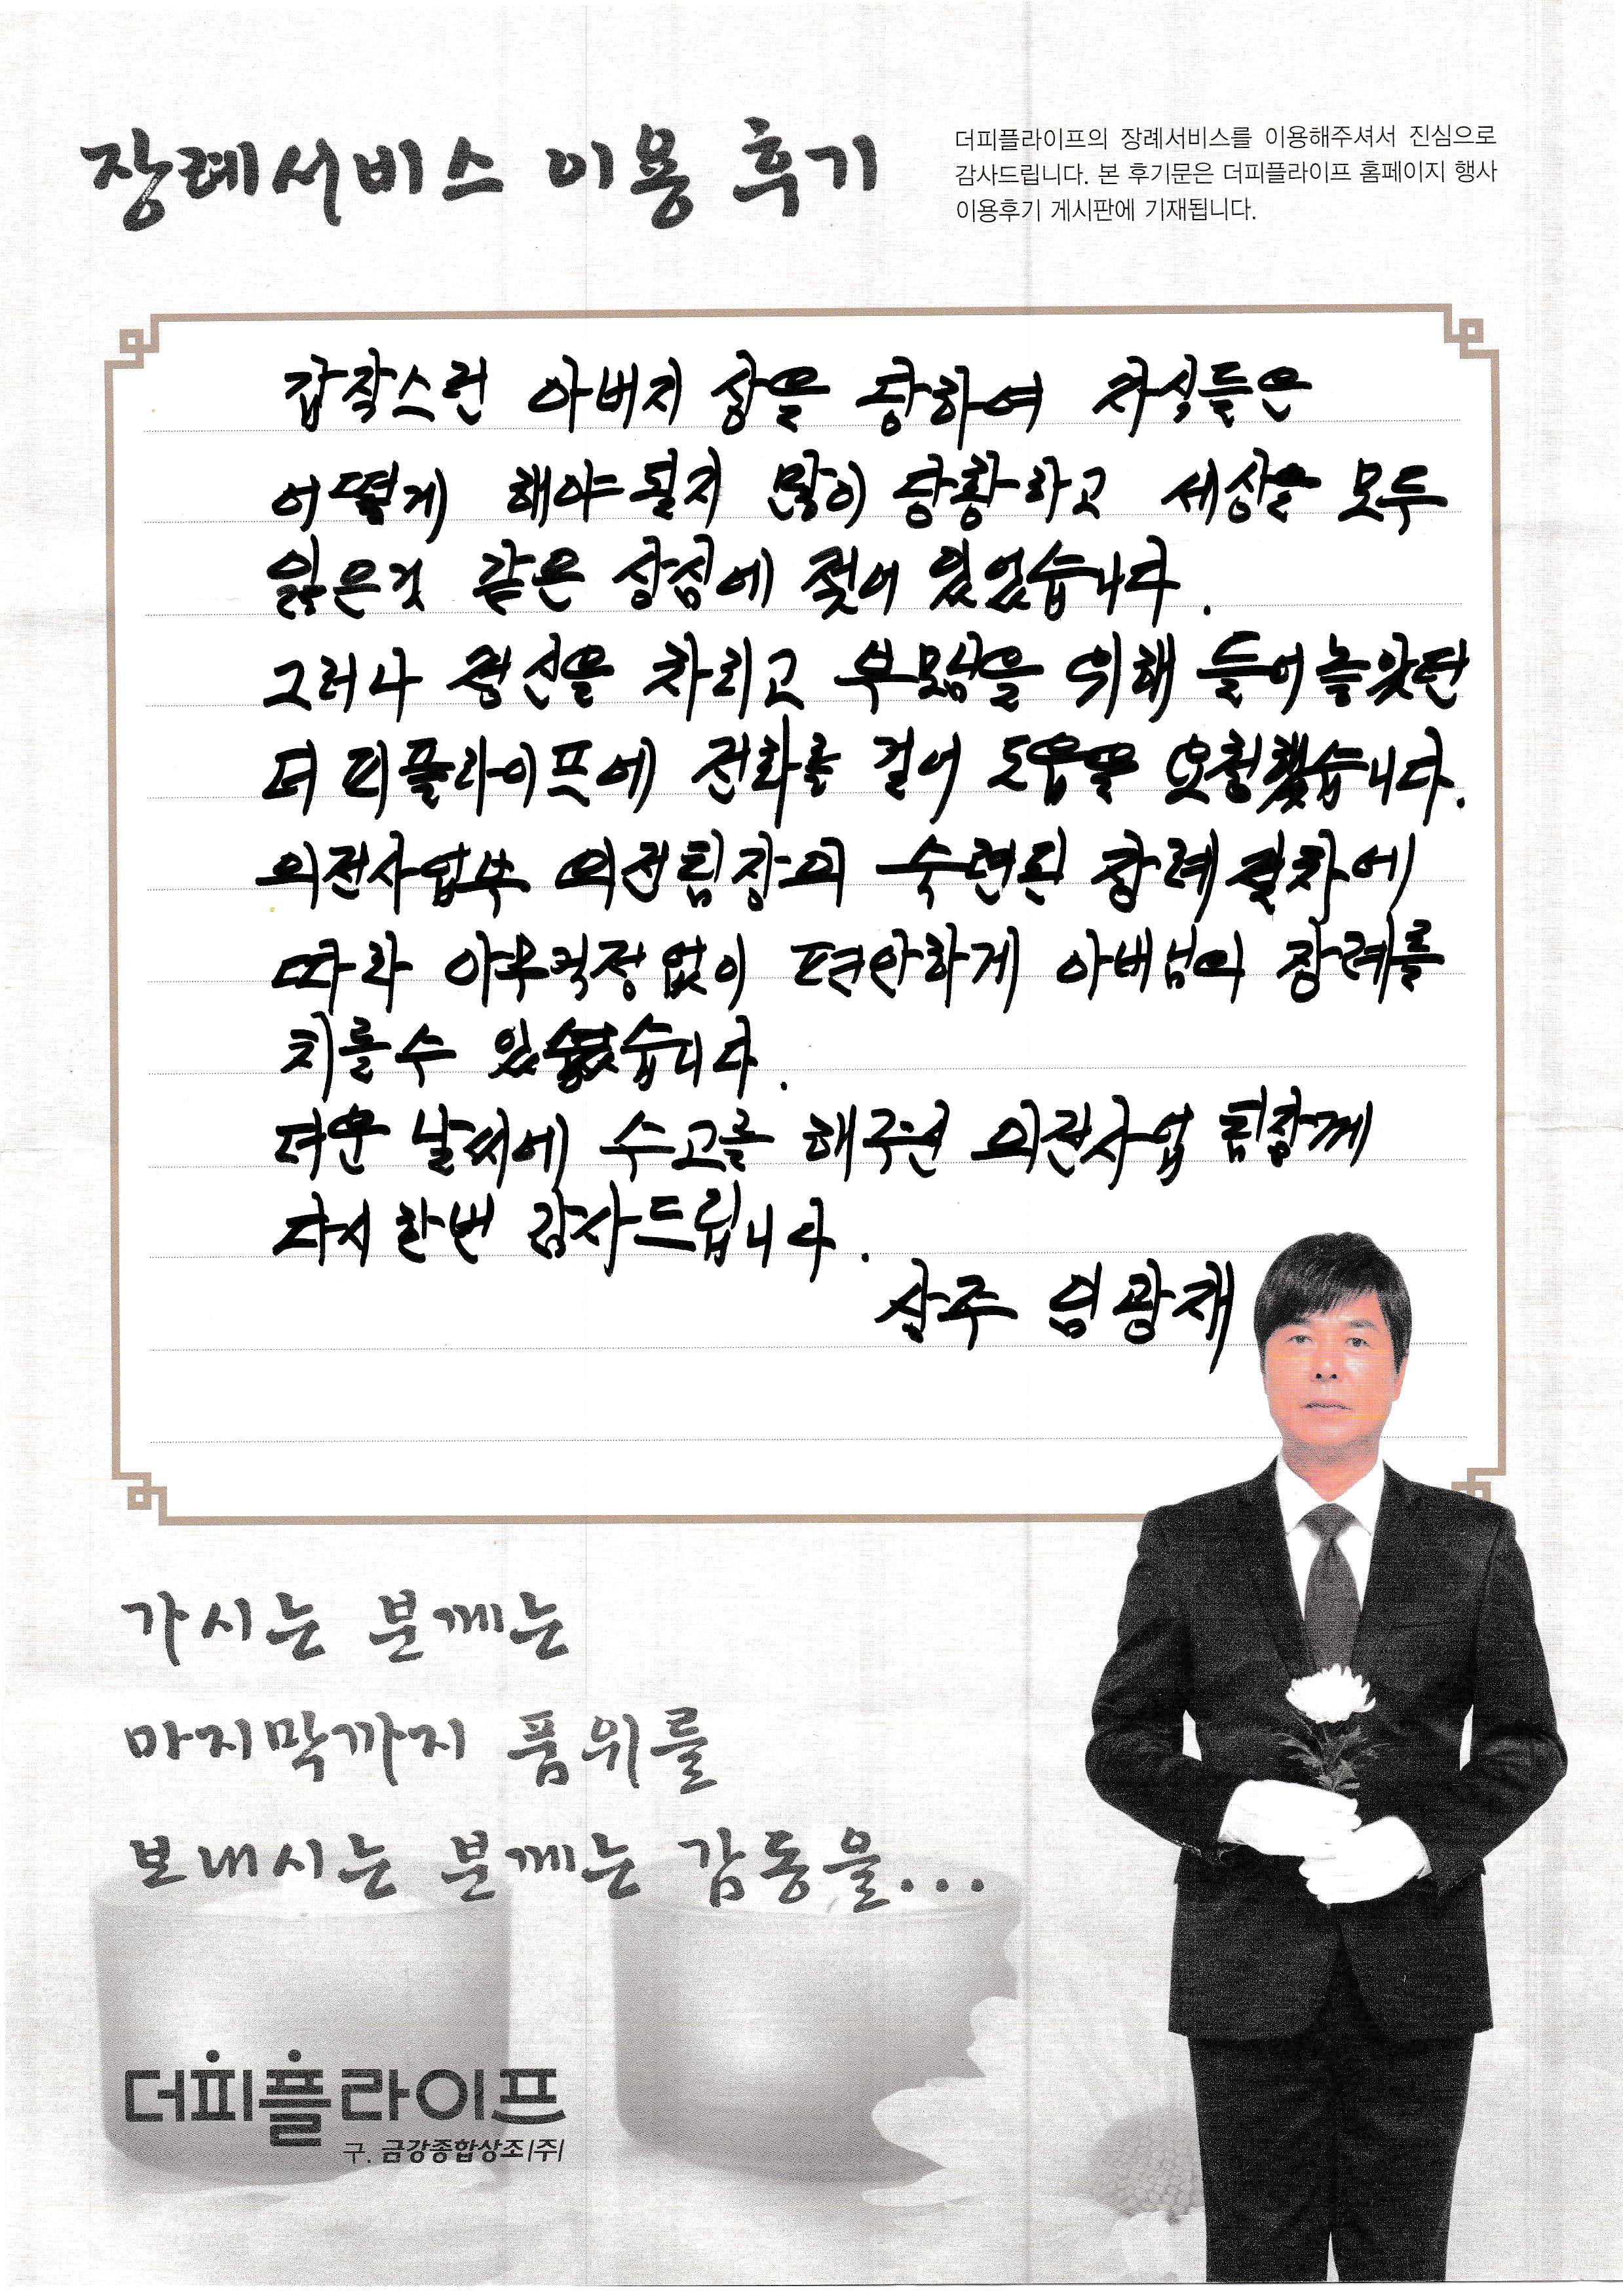 장례서비스 이용 후기
더피플라이프의 장례서비스를 이용해주셔서 진심으로
감사드립니다. 본 후기문은 더피플라이프 홈페이지 행사
이용후기 게시판에 기재됩니다.
갑작스런 아버지 상을 당하여 자식들은
어떻게 해야될지 많이 당황하고 세상을 모두
잃은것 같은 상심에 젖어 있었습니다.
그러나 정신을 차리고 부모님을 위해 들어놓았던
더피플라이프에 전화를 걸어 도움을 요청했습니다.
의전사업부 의전팀장의 숙련된 장례절차에
따라 아무걱정없이 편안하게 아버님의 장례를
치를수 있었습니다.
더운 날씨에 수고를 해주신 의전사업 팀장께
다시한번 감사드립니다.
상주 임광재
가시는 분께는
마지막까지 품위를
보내시는 분께는 감동을...
더피플라이프
구. 금강종합상조(주)